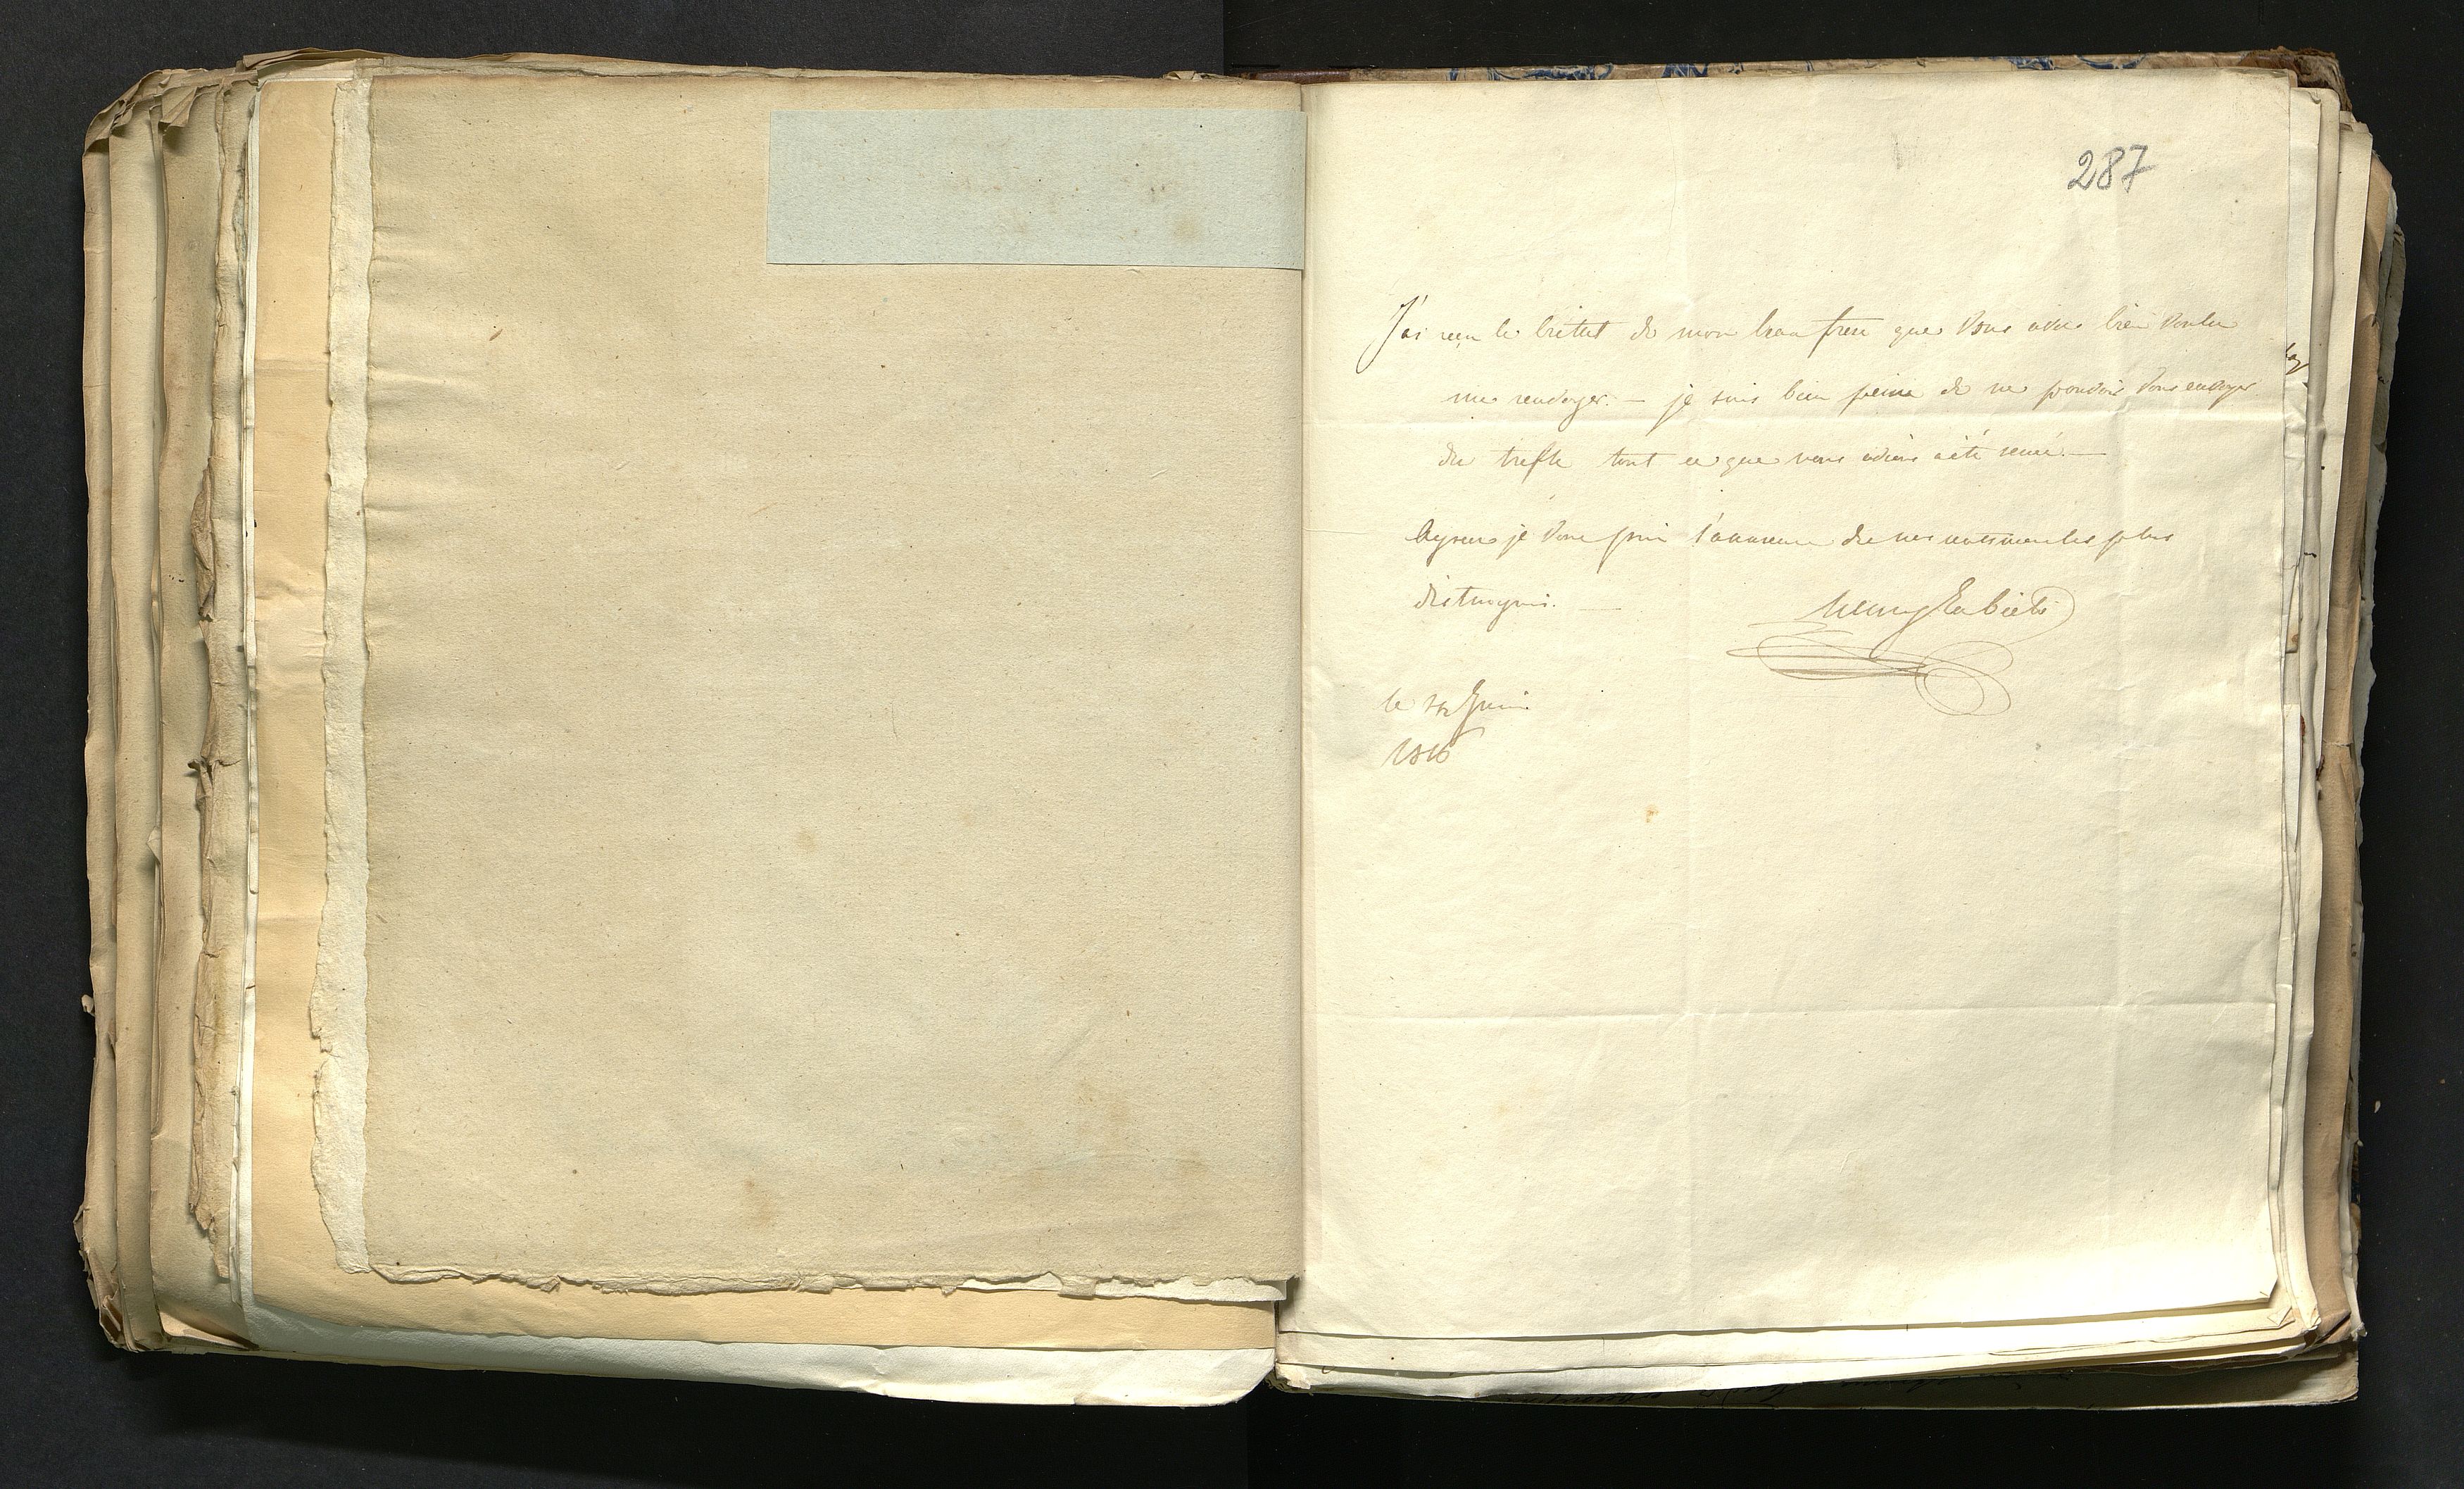 287
J'ai reçu le billet de mon beau frere que vous avez bien voulu
me renvoyer. — je suis bien peiné de ne pouvoir vous envoyer
du trefle tout ce que nous avions a été semé. —
Agréez je vous prie l'assurance de mes sentimens les plus
distingués. —
le Juin